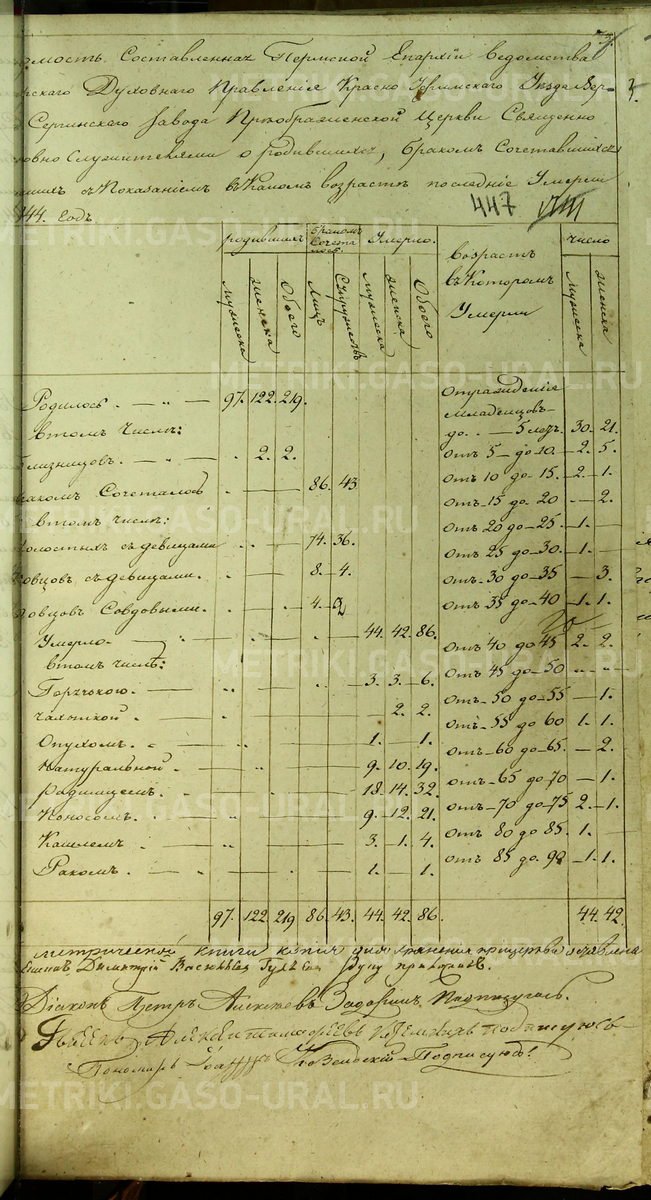 Составленная Пермской Епархіи ведомства
Духовнаго Правленія Красно Уфимскаго Уезда Вер-
Сергинскаго Завода Преображенской Церкви Священно
о родившихся, бракомъ Сочетавшихся
съ Показаніемъ въ Какомъ возрасте последніе Умерли
44. Годъ
447
родившихся
бракомъ Сочета лось.
Умерло.
возрастъ въ Которомъ Умерли
число
мужеска
женска
Обоего
Лицъ
Супружествъ
мужеска
женска
Обоего
мужеска
женска
METRIKI.GASO-URAL.RU
Родилось — „ — 97. 122. 219.
Отъ рожденія младенцовъ
до — 5 летъ. 30. 21.
втомъ Числе:
близнецовъ. — „ — 2. 2.
отъ 5 — до 10. — 2. 5.
бракомъ Сочеталось 86. 43
отъ 10 до 15. — 2. — 1.
втомъ числе:
отъ 15 до 20 — 2.
холостыхъ съ девицами 74. 36.
отъ 20 до 25 — 1. —
вдовцовъ съ девицами. 8. — 4.
отъ 25 до 30. — 1. —
отъ 30 до 35 — 3.
вдовцовъ Совдовыми. 4. — 2
отъ 35 до 40 — 1. 1.
Умерло — 44. 42. 86.
отъ 40 до 45 2. — 2.
втомъ числе:
отъ 45 до 50
Горячкою. — 3. 3. — 6.
отъ 50 до 55 — 1.
чахоткой. — 2. 2.
отъ 55 до 60 1. 1.
Опухомъ. — 1. — 1.
отъ 60 до 65. — 2.
Натуральной — 9. 10. 19.
отъ 65 до 70 — 1.
родимцемъ. — 18. 14. 32.
отъ 70 до 75 2. — 1.
Поносомъ. — 9. 12. 21.
отъ 80 до 85. 1. —
Кашлемъ — 3. 1. 4.
отъ 85 до 90 — 1. 1.
Ракомъ. — 1. — 1.
97. 122. 219 86. 43. 44. 42. 86. 44. 42
метрической книги копия для хранения прицеркви
Димитрий Васильевъ
Діаконъ Петръ Алексеевъ Подписуюсь.
подписуюсь
Пономарь Іоаннъ Подписуюсь.
METRIKI.GASO-URAL.RU